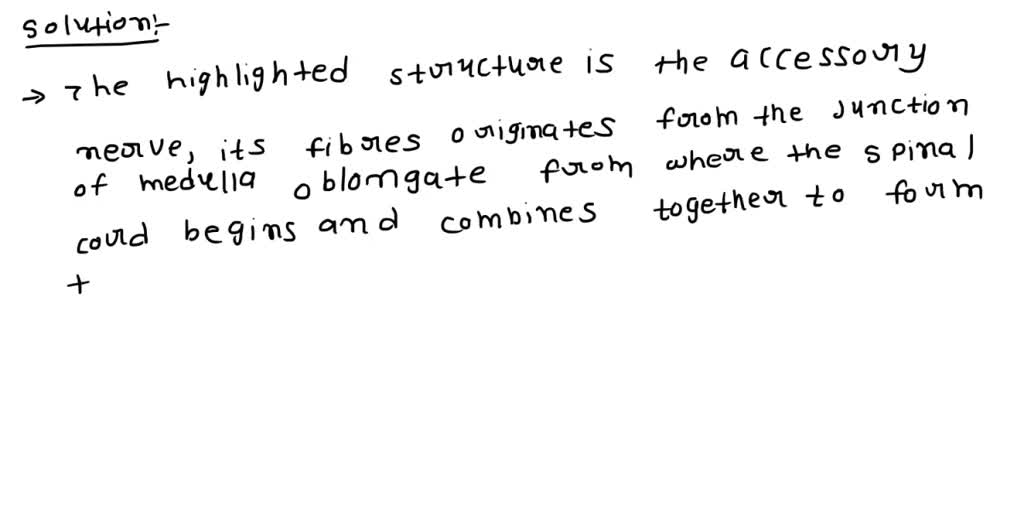 Solution:-
→ The highlighted structure is the accessory
nerve, its fibres originates from the junction
of medulla oblongate from where the spinal
cord begins and combines together to form
t